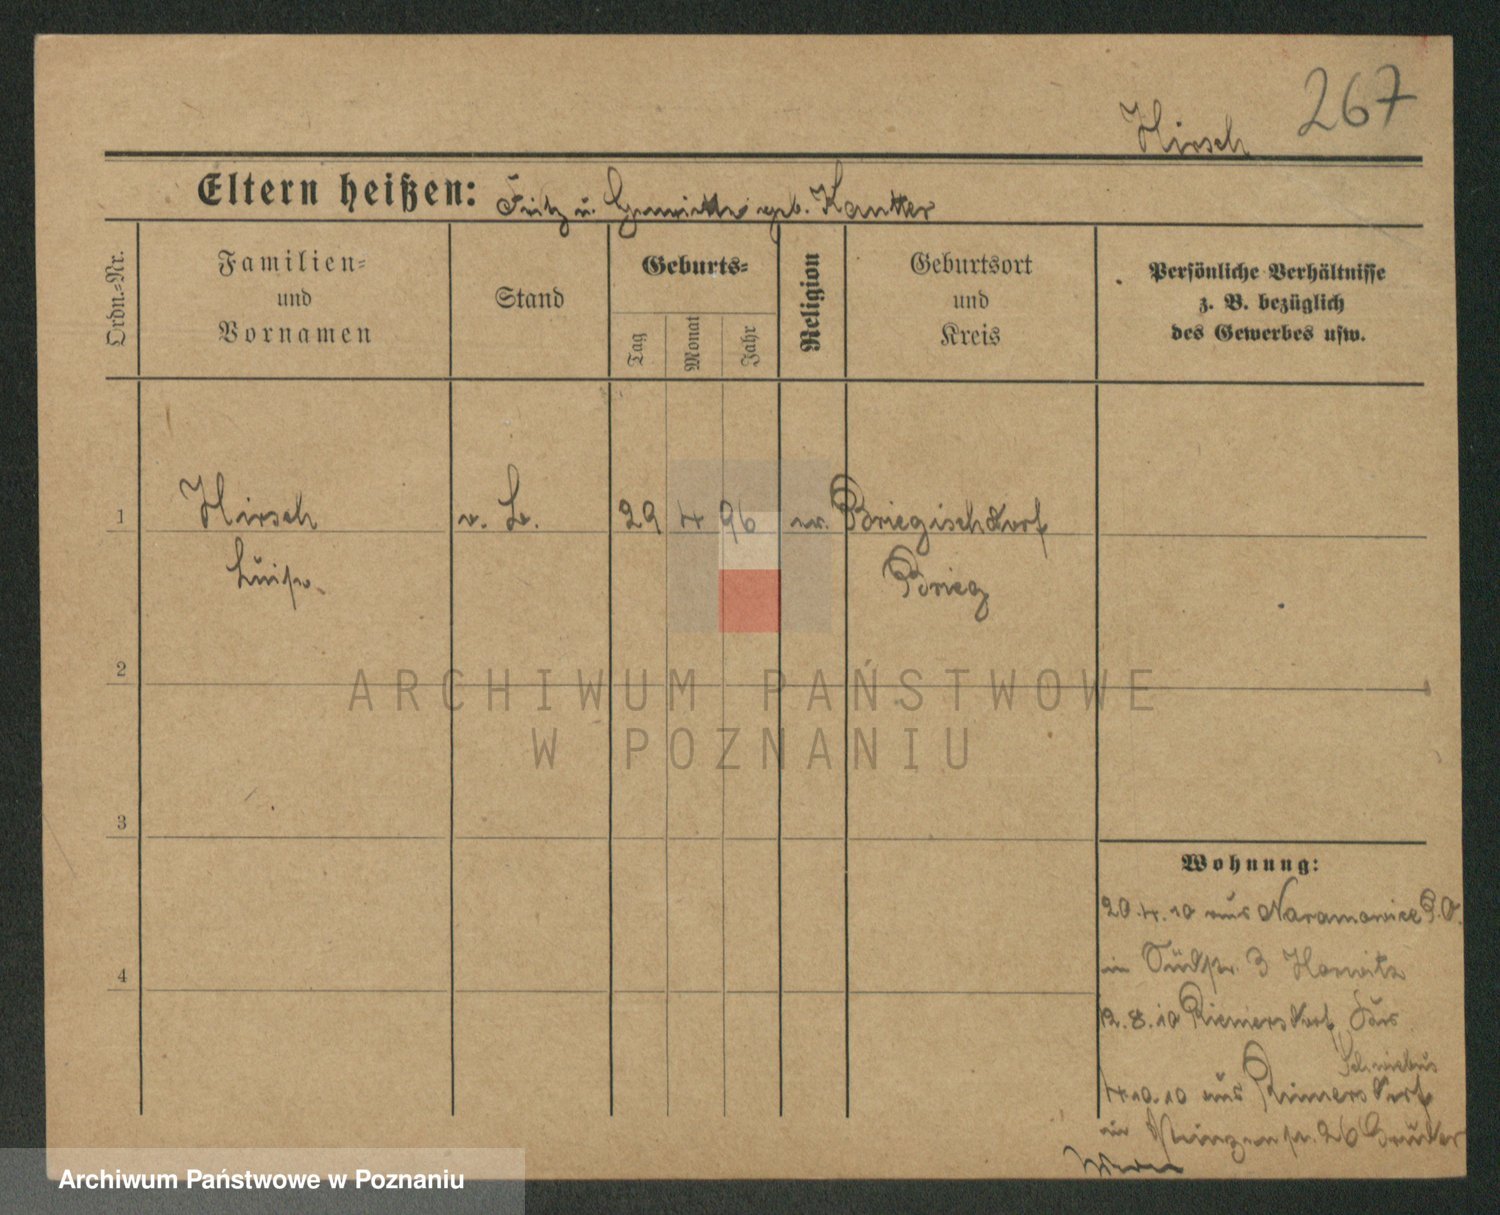 267
Hirsch
Eltern heißen: Fritz u. geb. Kantter
Ordn.-Nr.
Familien-
und
Vornamen
Stand
Geburts-
Tag
Monat
Jahr
Religion
Geburtsort
und
Kreis
Persönliche Verhältnisse
z. B. bezüglich
des Gewerbes usw.
1
Hirsch
29 4 96
Briegischdorf
Luise
Brieg
2
ARCHIWUM PAŃSTWOWE
W POZNANIU
3
Wohnung:
20.4.10 aus Naramowice P.O.
in Südstr. 3 Horwitz
4
12.8.10
Schwiebus
4.10.10 aus Rimersdorf
in 26 Bruder
Archiwum Państwowe w Poznaniu